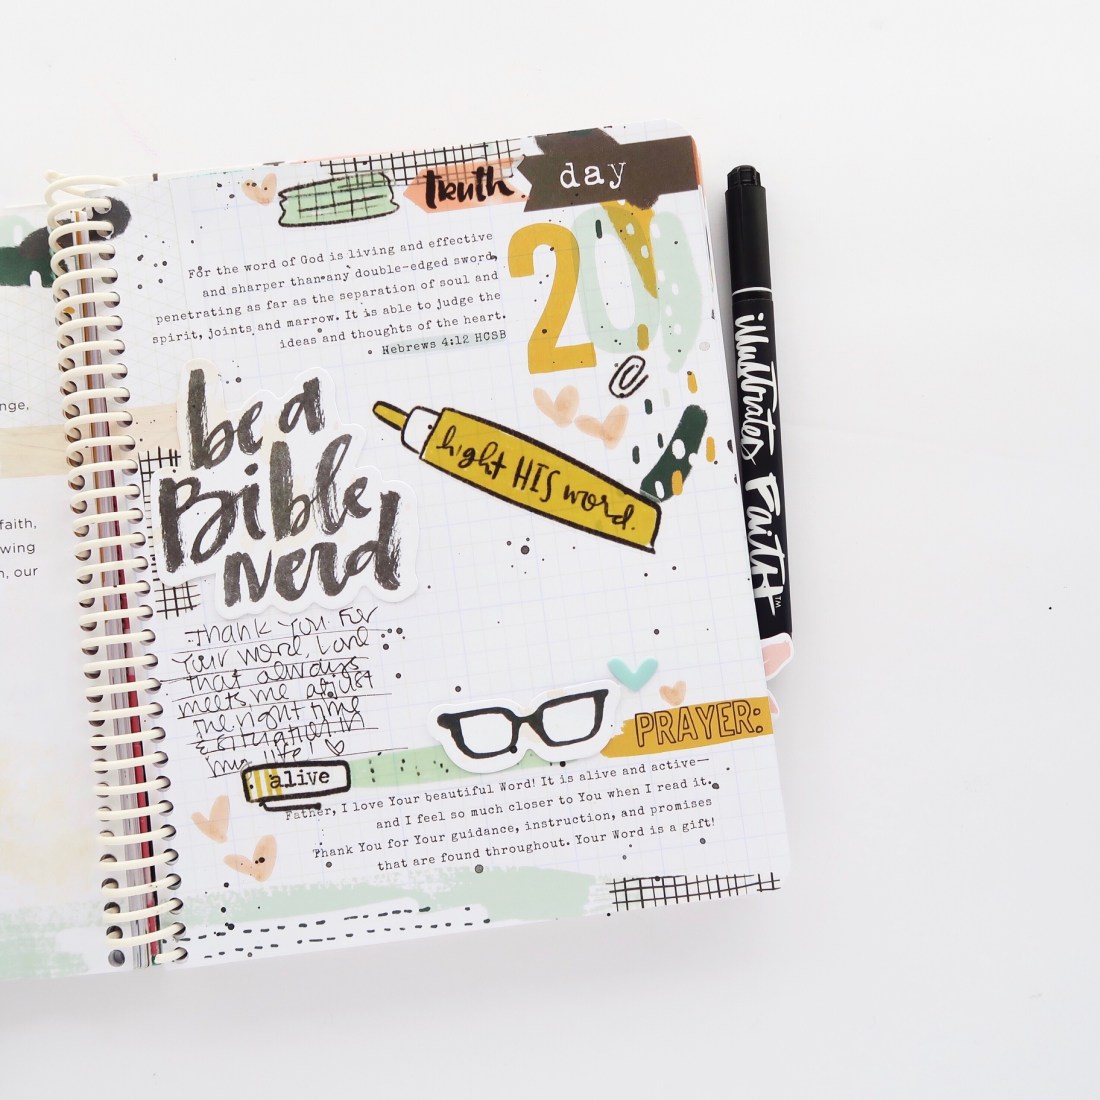 nge,
faith,
wing
n, our
truth.
day
20
For the word of God is living and effective
and sharper than any double-edged sword,
penetrating as far as the separation of soul and
spirit, joints and marrow. It is able to judge the
ideas and thoughts of the heart.
Hebrews 4:12 HCSB
be a
Bible
nerd
hight HIS word.
Thank you for
your word, Lord
that always
meets me at just
the right time
& situation in
my life!
PRAYER:
alive
Father, I love Your beautiful Word! It is alive and active—
and I feel so much closer to You when I read it.
Thank You for Your guidance, instruction, and promises
that are found throughout. Your Word is a gift!
illustrated Faith™